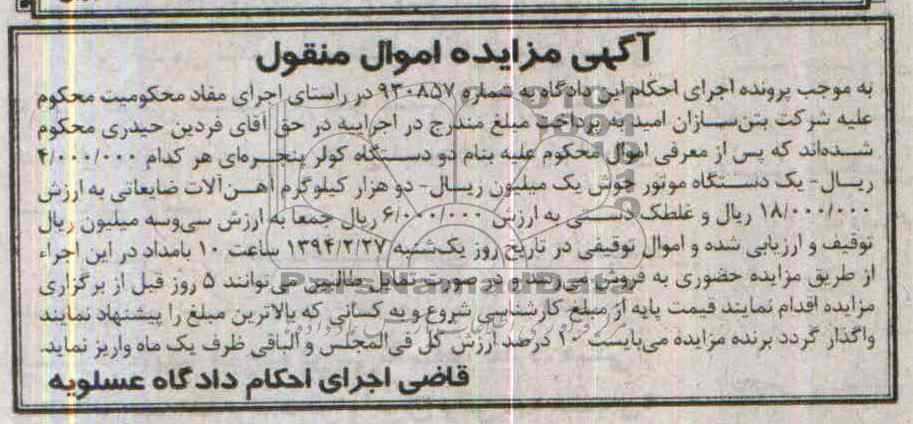 آگهی مزایده اموال منقول
به موجب پرونده اجرای احکام این دادگاه به شماره ۹۳۰۸۵۷ در راستای اجرای مفاد محکومیت محکوم
علیه شرکت بتن‌سازان امید به پرداخت مبلغ مندرج در اجراییه در حق آقای فردین حیدری محکوم
شده‌اند که پس از معرفی اموال محکوم علیه بنام دو دستگاه کولر پنجره‌ای هر کدام ۴/۰۰۰/۰۰۰
ریال- یک دستگاه موتور جوش یک میلیون ریال- دو هزار کیلوگرم آهن‌آلات ضایعاتی به ارزش
۱۸/۰۰۰/۰۰۰ ریال و غلطک دستی به ارزش ۶/۰۰۰/۰۰۰ ریال جمعا به ارزش سی‌وسه میلیون ریال
توقیف و ارزیابی شده و اموال توقیفی در تاریخ روز یک‌شنبه ۱۳۹۴/۲/۲۷ ساعت ۱۰ بامداد در این اجراء
از طریق مزایده حضوری به فروش می‌رسد و در صورت تمایل طالبین می‌توانند ۵ روز قبل از برگزاری
مزایده اقدام نمایند قیمت پایه از مبلغ کارشناسی شروع و به کسانی که بالاترین مبلغ را پیشنهاد نمایند
واگذار گردد برنده مزایده می‌بایست ۱۰ درصد ارزش کل فی‌المجلس و الباقی ظرف یک ماه واریز نماید.
قاضی اجرای احکام دادگاه عسلویه
ParsNamadData